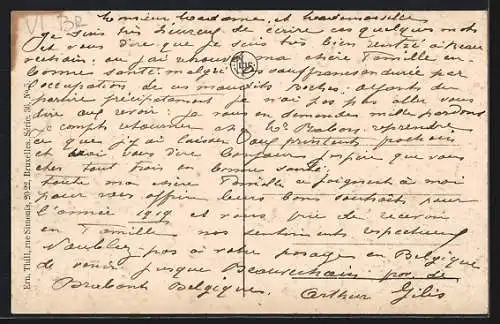 VI BR
Monsieur Madame, et Mademoiselle
Je suis très heureux de écrire ces quelques mots
et vous dire que je suis très bien rentré a Beau
vechain; ou j'ai retrouvé ma chère Famille en
bonne santé malgré les souffrances durée par
l'occupation de ces maudits Boches:
partir précipitament je n'ai pas plus aller vous
dire au revoir: je vous en demandes mille pardons
je compts retourner et reprendre
ce que j'y ai laisser aux printents prochain
et vous dire Bonjour espère que vous
êtes tout trois en bonne santé:
toute ma chère Famille se joignent à moi
pour vous offrir leurs bons souhaits pour
l'année 1919 et vous prie de recevoir
en Famille nos sentiments respectueux
N'oubliez pas à votre passage en Belgique
de venir jusque Beauvechain pro. de
Brabant Belgique. Arthur Gilis
Ern. Thill, rue Simonis, 20-22, Bruxelles. Série 30, No